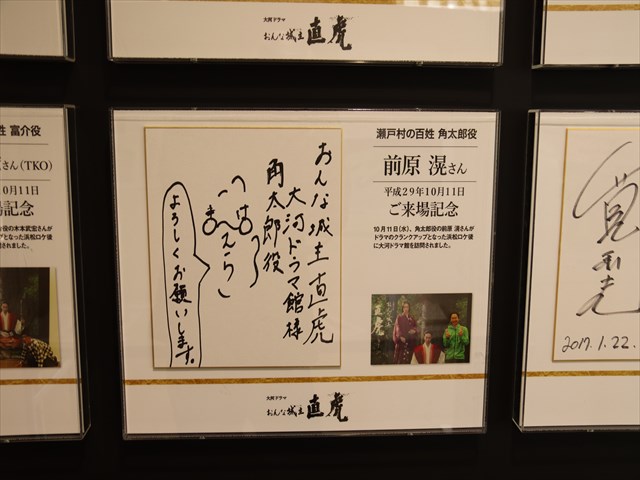 大河ドラマ
おんな城主 直虎
姓 富介役
さん(TKO)
0月11日
場記念
役の木本武宏さんが
プとなった浜松ロケ後
されました。
おんな城主直虎
大河ドラマ館様
角太郎役
まえはら
よろしくお願いします。
瀬戸村の百姓 角太郎役
前原 滉さん
平成29年10月11日
ご来場記念
10月11日(水)、角太郎役の前原 滉さんが
ドラマのクランクアップとなった浜松ロケ後
に大河ドラマ館を訪問されました。
直虎
大河ドラマ
おんな城主 直虎
2017.1.22.